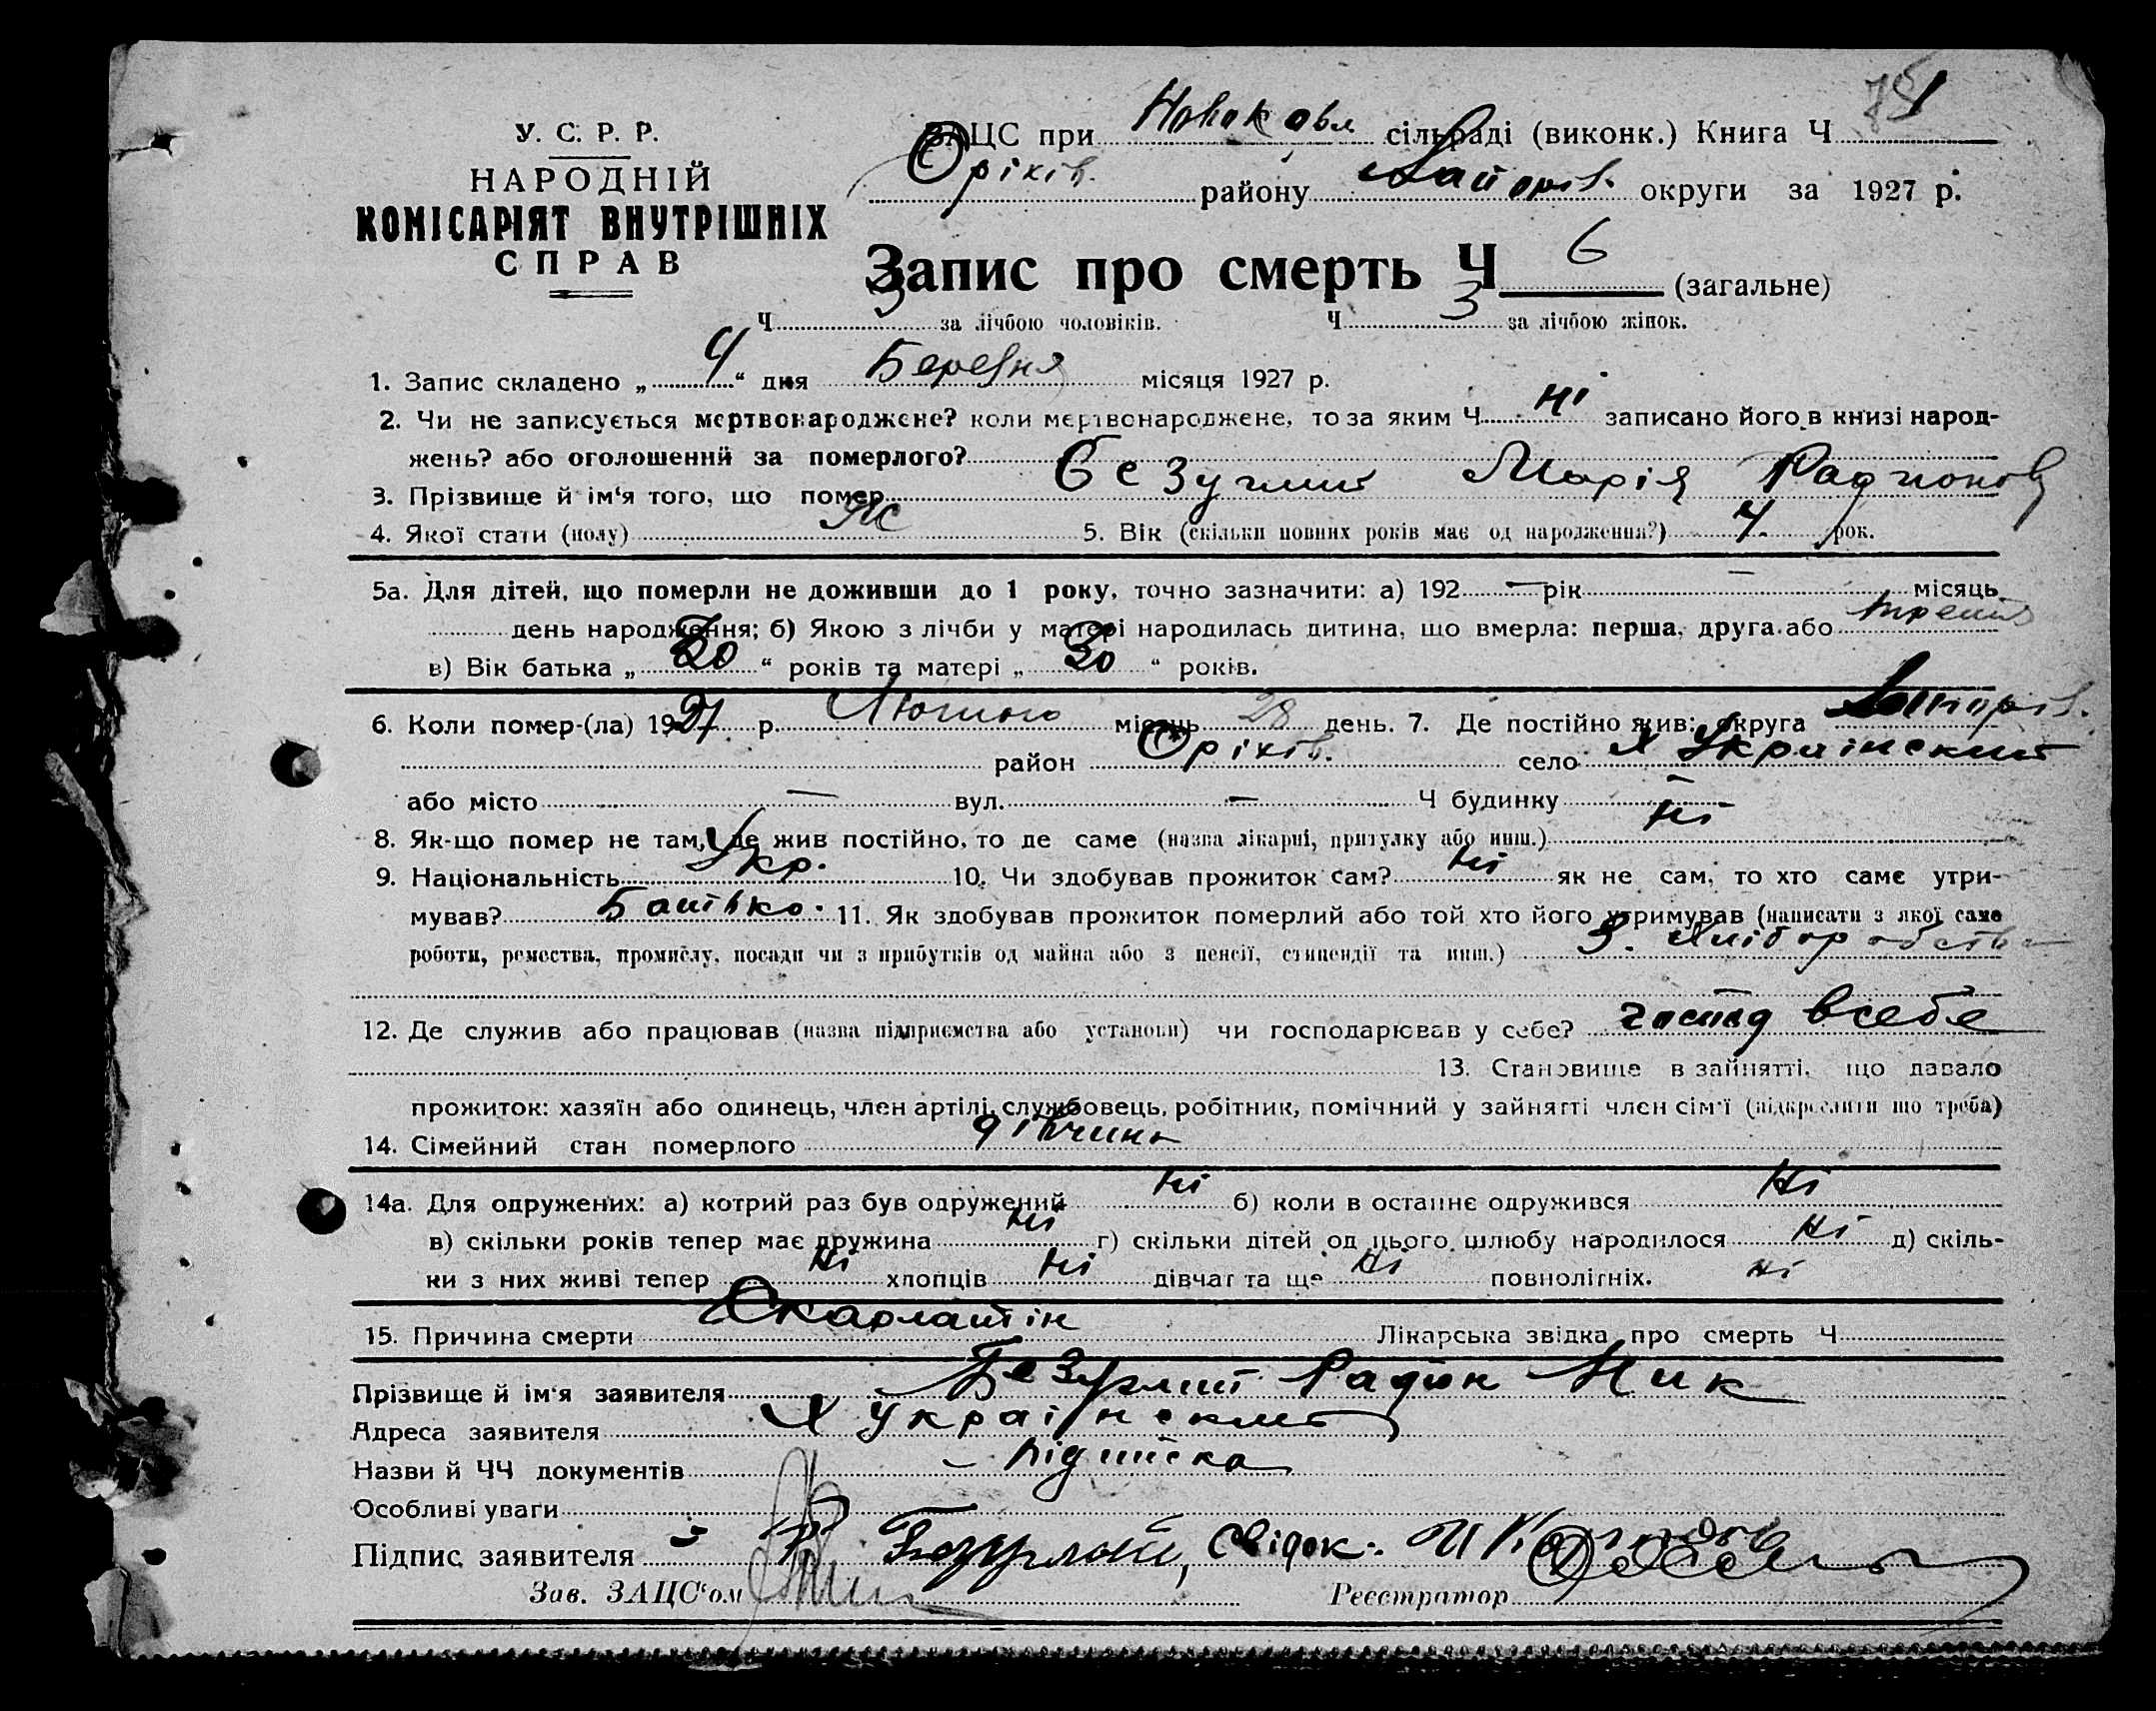 У. С. Р. Р.
НАРОДНІЙ
КОМІСАРІЯТ ВНУТРІШНІХ
СПРАВ
ЗАЦС при сільраді (виконк.) Книга Ч
Оріхів. району Запоріз. округи за 1927 р.
Запис про смерть Ч 6 (загальне)
Ч 3 за лічбою чоловіків. Ч 3 за лічбою жінок.
1. Запис складено „ 4 “ дня Березня місяця 1927 р.
2. Чи не записується мертвонароджене? коли мертвонароджене, то за яким Ч ні записано його в книзі народ-
жень? або оголошений за померлого?
3. Прізвище й ім‘я того, що помер Безуглий Марія Радионов
4. Якої стати (полу) Ж 5. Вік (скільки повних років має од народження?) 4 рок.
5а. Для дітей, що померли не доживши до 1 року, точно зазначити: а) 192 — рік — місяць
день народження; б) Якою з лічби у матері народилась дитина, що вмерла: перша, друга або третя
в) Вік батька „ 30 “ років та матері „ 30 “ років.
6. Коли помер-(ла) 1927 р. Лютого місяць 28 день. 7. Де постійно жив: округа Запоріз.
район Оріхів. село Х Українский
або місто — вул. — Ч будинку —
8. Як-що помер не там, де жив постійно, то де саме (назва лікарні, притулку або инш.) ні
9. Національність Укр. 10. Чи здобував прожиток сам? ні як не сам, то хто саме утри-
мував? Батько. 11. Як здобував прожиток померлий або той хто його утримував (написати з якої саме
роботи, ремества, промислу, посади чи з прибутків од майна або з пенсії, стипендії та инш.) З. Хліборобства
12. Де служив або працював (назва підприємства або установи) чи господарював у себе? господ всебе
13. Становище в зайнятті, що давало
прожиток: хазяїн або одинець, член артілі, службовець, робітник, помічний у зайнятті член сім‘ї (підкреслити що треба)
14. Сімейний стан померлого дівчина
14а. Для одружених: а) котрий раз був одружений ні б) коли в останнє одружився ні
в) скільки років тепер має дружина ні г) скільки дітей од цього шлюбу народилося ні д) скіль-
ки з них живі тепер ні хлопців ні дівчат та ще ні повнолітніх. ні
15. Причина смерти Скарлатін Лікарська звідка про смерть Ч
Прізвище й ім‘я заявителя Безуглий Радион Ник
Адреса заявителя Х Українский
Назви й ЧЧ документів — підпіска
Особливі уваги
Підпис заявителя Р Безуглий, Свідок:
Зав. ЗАЦС‘ом Реєстратор